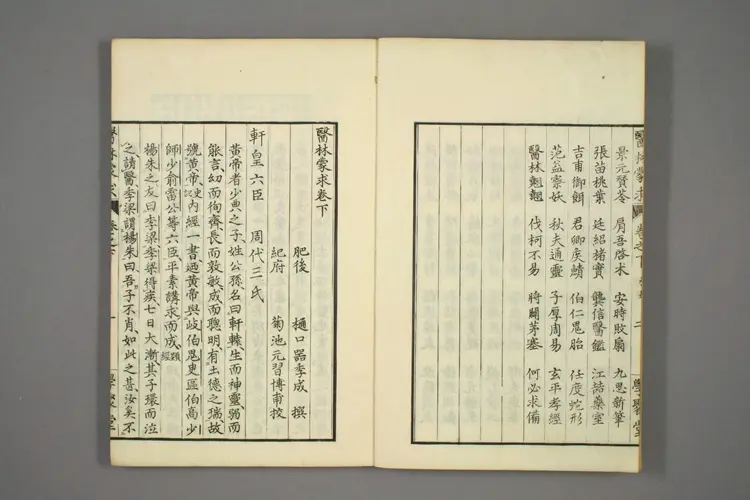 景元賢苓 肩吾啓朮 安時敗扇 九思新筆
張苗桃葉 廷紹楮實 龔信醫鑑 江喆藥室
吉甫御餌 君卿矦鯖 伯仁鬼胎 任度蛇形
范益察妖 秋夫通靈 子厚周易 玄平孝經
醫林翹翹 伐柯不易 將開茅塞 何必求備
醫林蒙求 卷之下 二 學聚堂
醫林蒙求卷下
肥後 樋口器季成 撰
紀府 菊池元習博甫 挍
軒皇六臣 周代三氏
黃帝者少典之子、姓公孫名曰軒轅生而神靈、弱而
能言、幼而徇齊、長而敦敏、成而聰明、有土德之瑞、故
號黃帝、史記內經一書、廼黃帝與岐伯鬼臾區伯高少
師少俞雷公等六臣、平素講求而成、類經
楊朱之友曰季梁、季梁得疾、七日大漸、其子環而泣
之、請醫、季梁謂楊朱曰、吾子不肖、如此之甚、汝奚不
醫林蒙求 卷之下 一 學聚堂